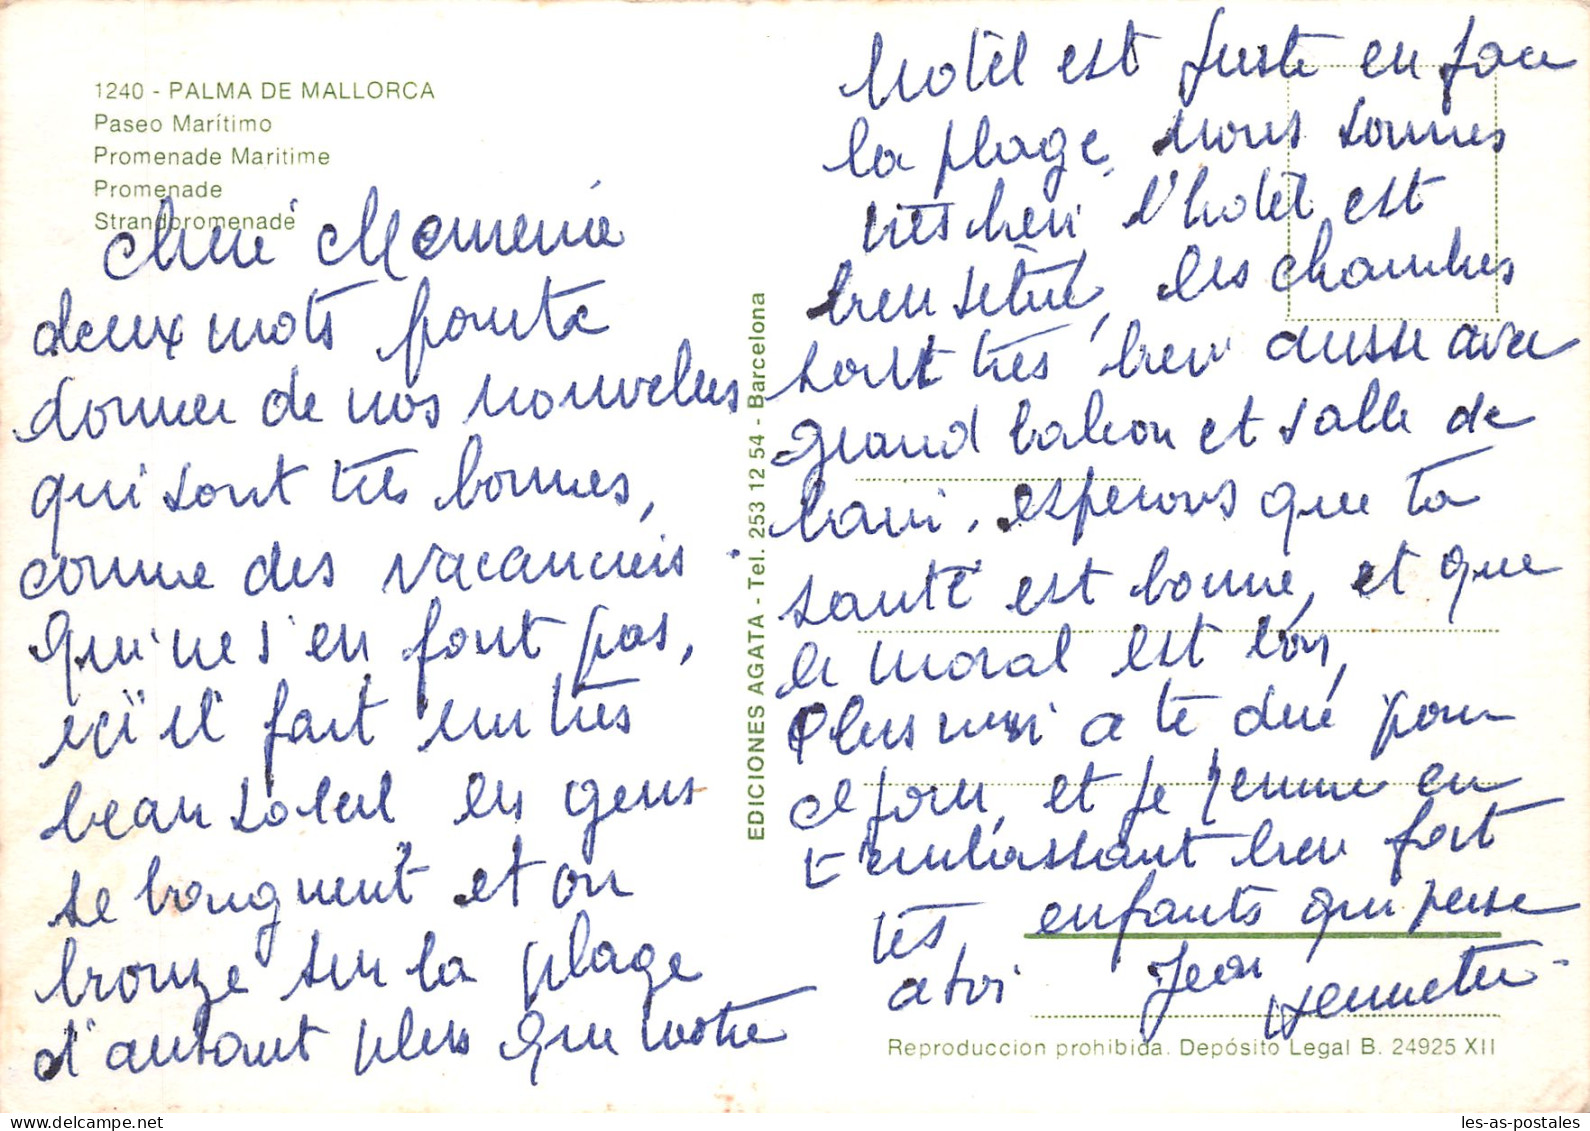 1240 - PALMA DE MALLORCA
Paseo Marítimo
Promenade Maritime
Promenade
Strandpromenade
chere Memenie
deux mots pour te
donner de nos nouvelles
qui sont très bonnes,
comme des vacanciers.
Qui ne s'en font pas,
ici il fait un très
beau soleil les gens
se baignent et on
bronze sur la plage
d'autant plus que notre
hotel est juste en face
la plage, nous sommes
très bien l'hotel est
bien situé, les chambres
sont très bien aussi avec
grand balcon et salle de
bain. esperons que ta
santé est bonne, et que
le moral est bon,
Plus rien a te dire pour
ce jour, et je termine en
t'embrassant bien fort
tes enfants qui pense
a toi Jean
Hennette
EDICIONES AGATA - Tel. 253 12 54 - Barcelona
Reproduccion prohibida. Depósito Legal B. 24925 XII
les-as-postales